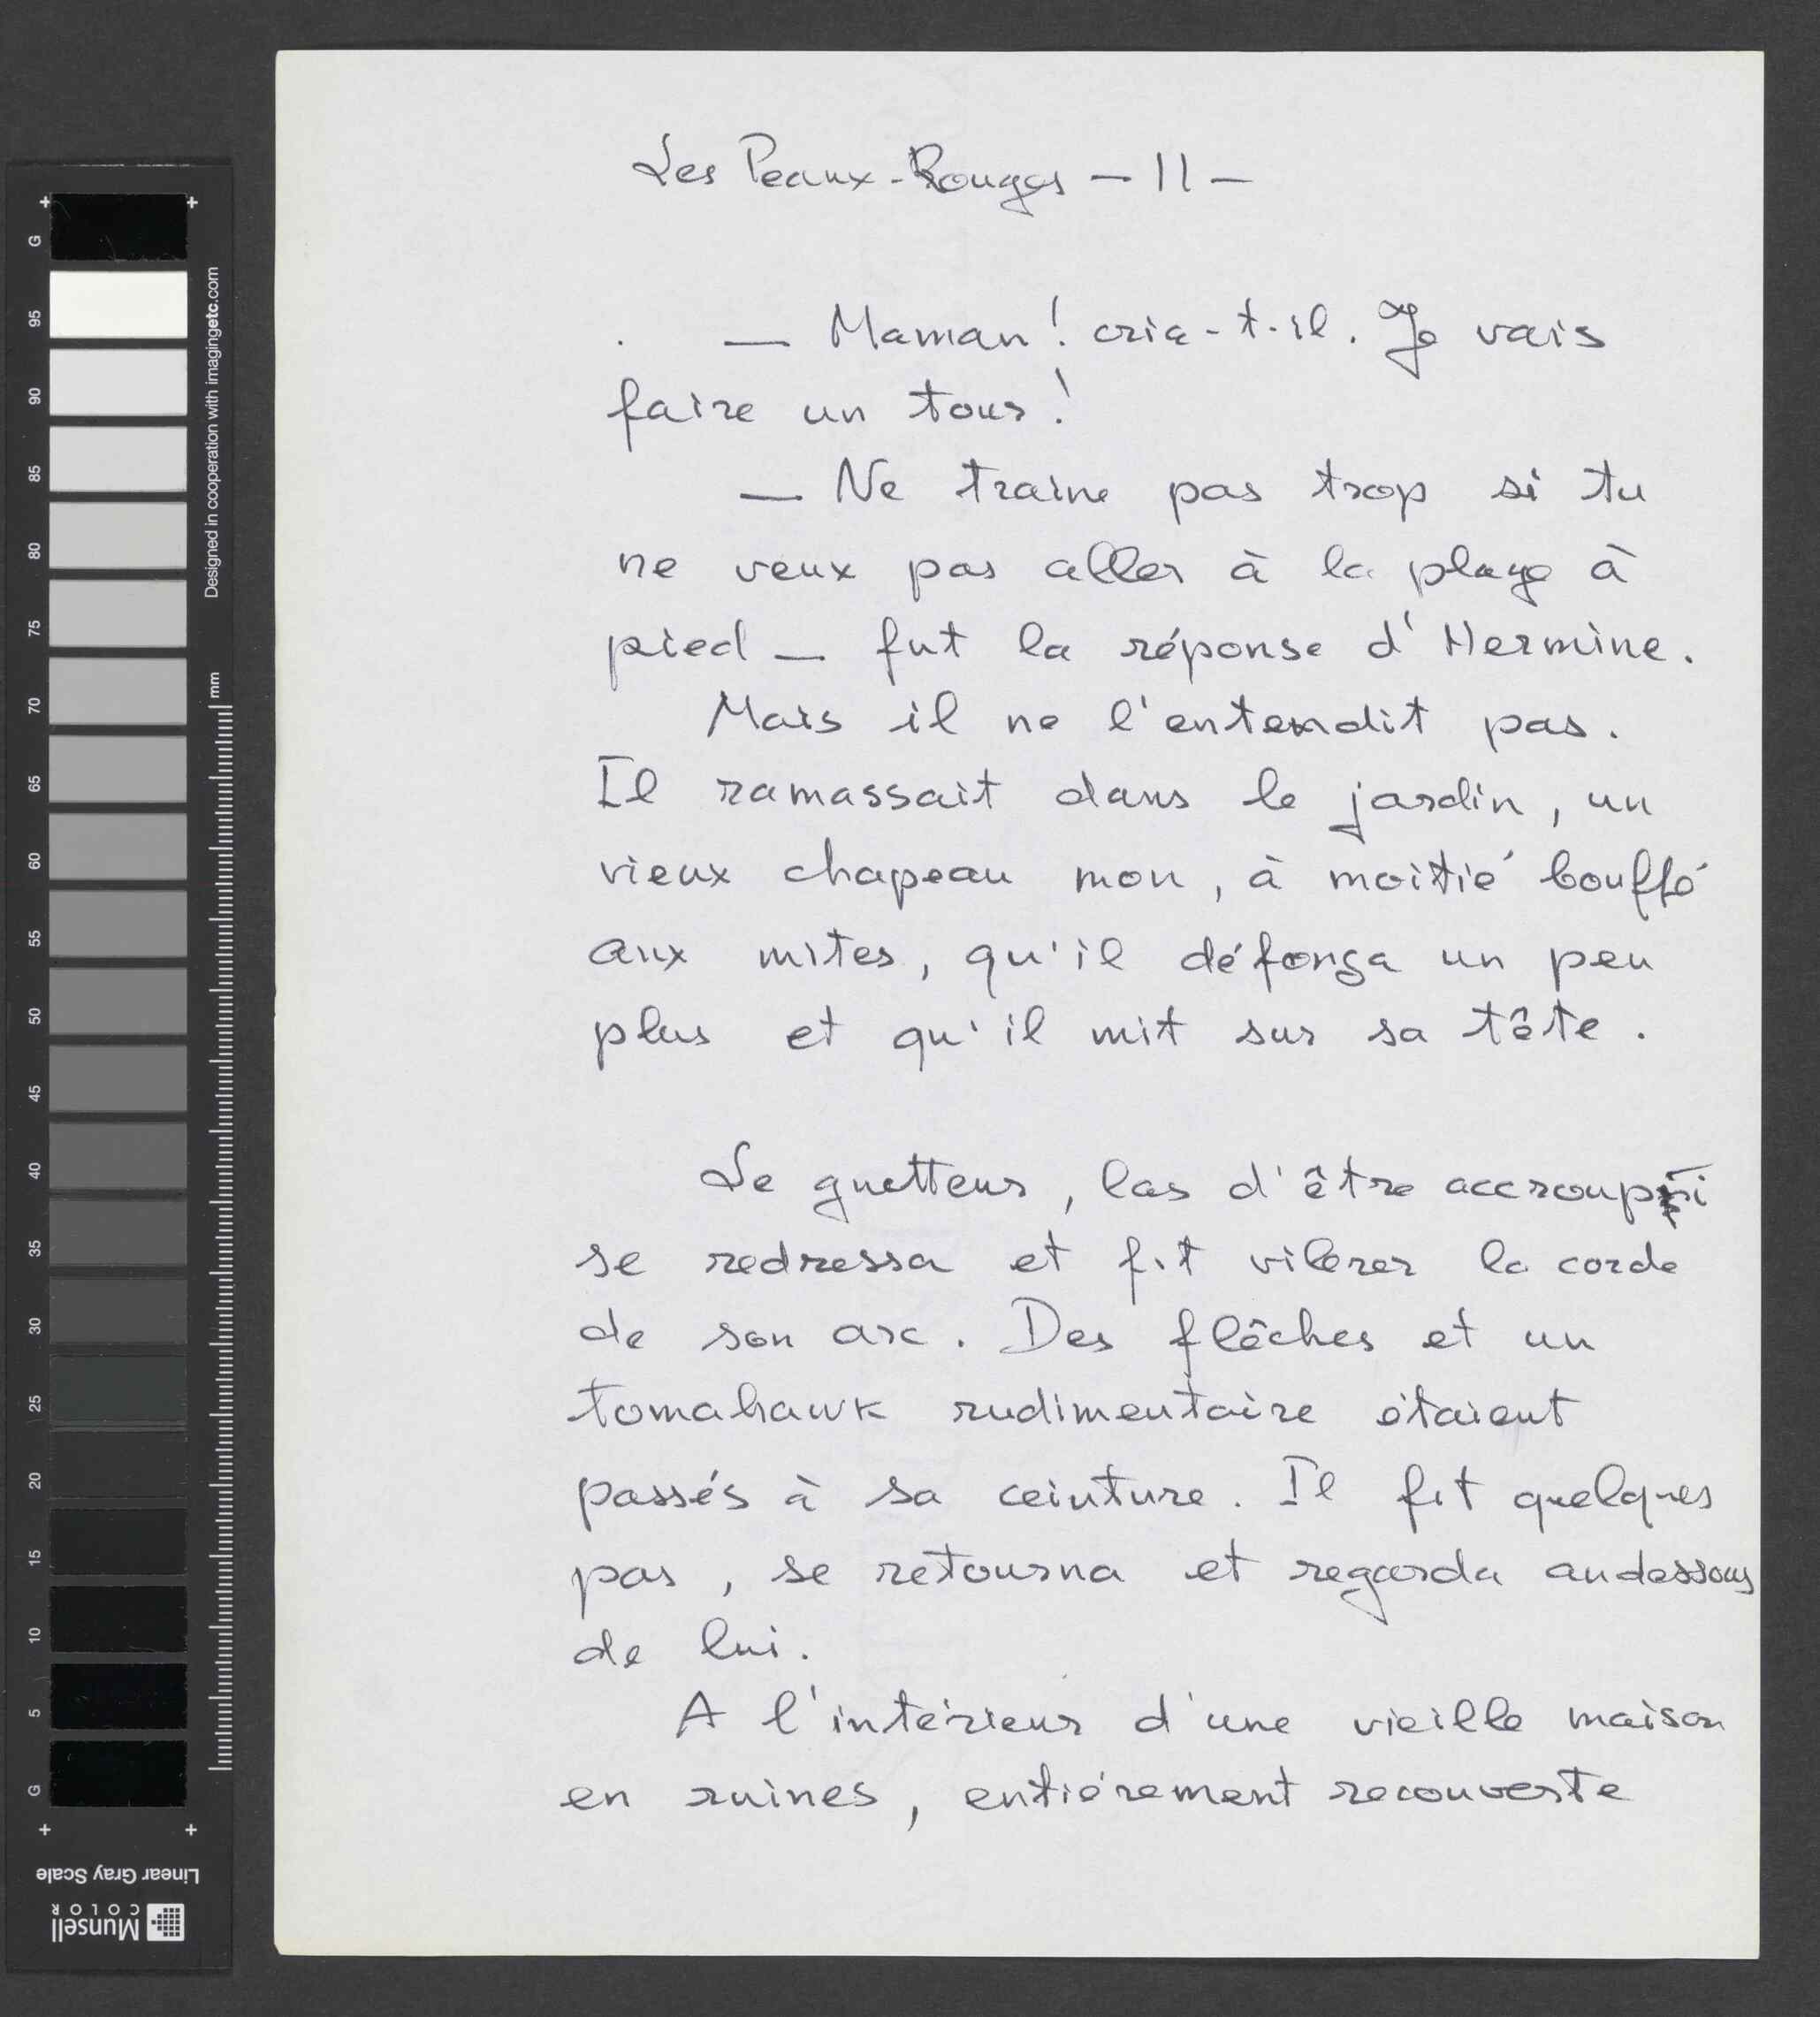 Les Peaux-Rouges — 11 —
— Maman ! cria-t-il. Je vais
faire un tour !
— Ne traine pas trop si tu
ne veux pas aller à la plage à
pied — fut la réponse d'Hermine.
Mais il ne l'entendit pas.
Il ramassait dans le jardin, un
vieux chapeau mou, à moitié bouffé
aux mites, qu'il défonça un peu
plus et qu'il mit sur sa tête.
Le guetteur, las d'être accroupi
se redressa et fit vibrer la corde
de son arc. Des flêches et un
tomahawk rudimentaire étaient
passés à sa ceinture. Il fit quelques
pas, se retourna et regarda audessous
de lui.
A l'intérieur d'une vieille maison
en ruines, entiérement recouverte
G
95
90
85
80
75
70
65
60
55
50
45
40
35
30
25
20
15
10
5
G
Designed in cooperation with imagingetc.com
mm
Linear Gray Scale
Munsell
COLOR